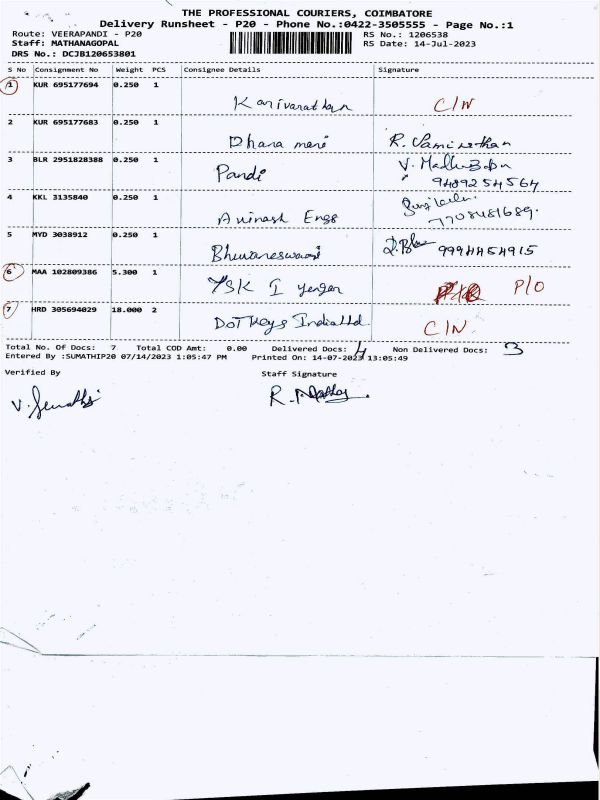 THE PROFESSIONAL COURIERS, COIMBATORE
Delivery Runsheet - P20 - Phone No.:0422-3505555 - Page No.:1
Route: VEERAPANDI - P20 RS No.: 1206538
Staff: MATHANAGOPAL RS Date: 14-Jul-2023
DRS No.: DCJB120653801
S No Consignment No Weight PCS Consignee Details Signature
1 KUR 695177694 0.250 1 C/N
2 KUR 695177683 0.250 1 Dhana mani
3 BLR 2951828388 0.250 1 Pandi
9489254564
4 KKL 3135840 0.250 1 Avinash Engs
7708481689.
5 MYD 3038912 0.250 1 Bhuvaneswari 9994454915
6 MAA 102809386 5.300 1 TSK I P/O
7 HRD 305694029 18.000 2 DoT Keys India Ltd. C/N.
Total No. Of Docs: 7 Total COD Amt: 0.00 Delivered Docs: 4 Non Delivered Docs: 3
Entered By :SUMATHIP20 07/14/2023 1:05:47 PM Printed On: 14-07-2023 13:05:49
Verified By Staff Signature